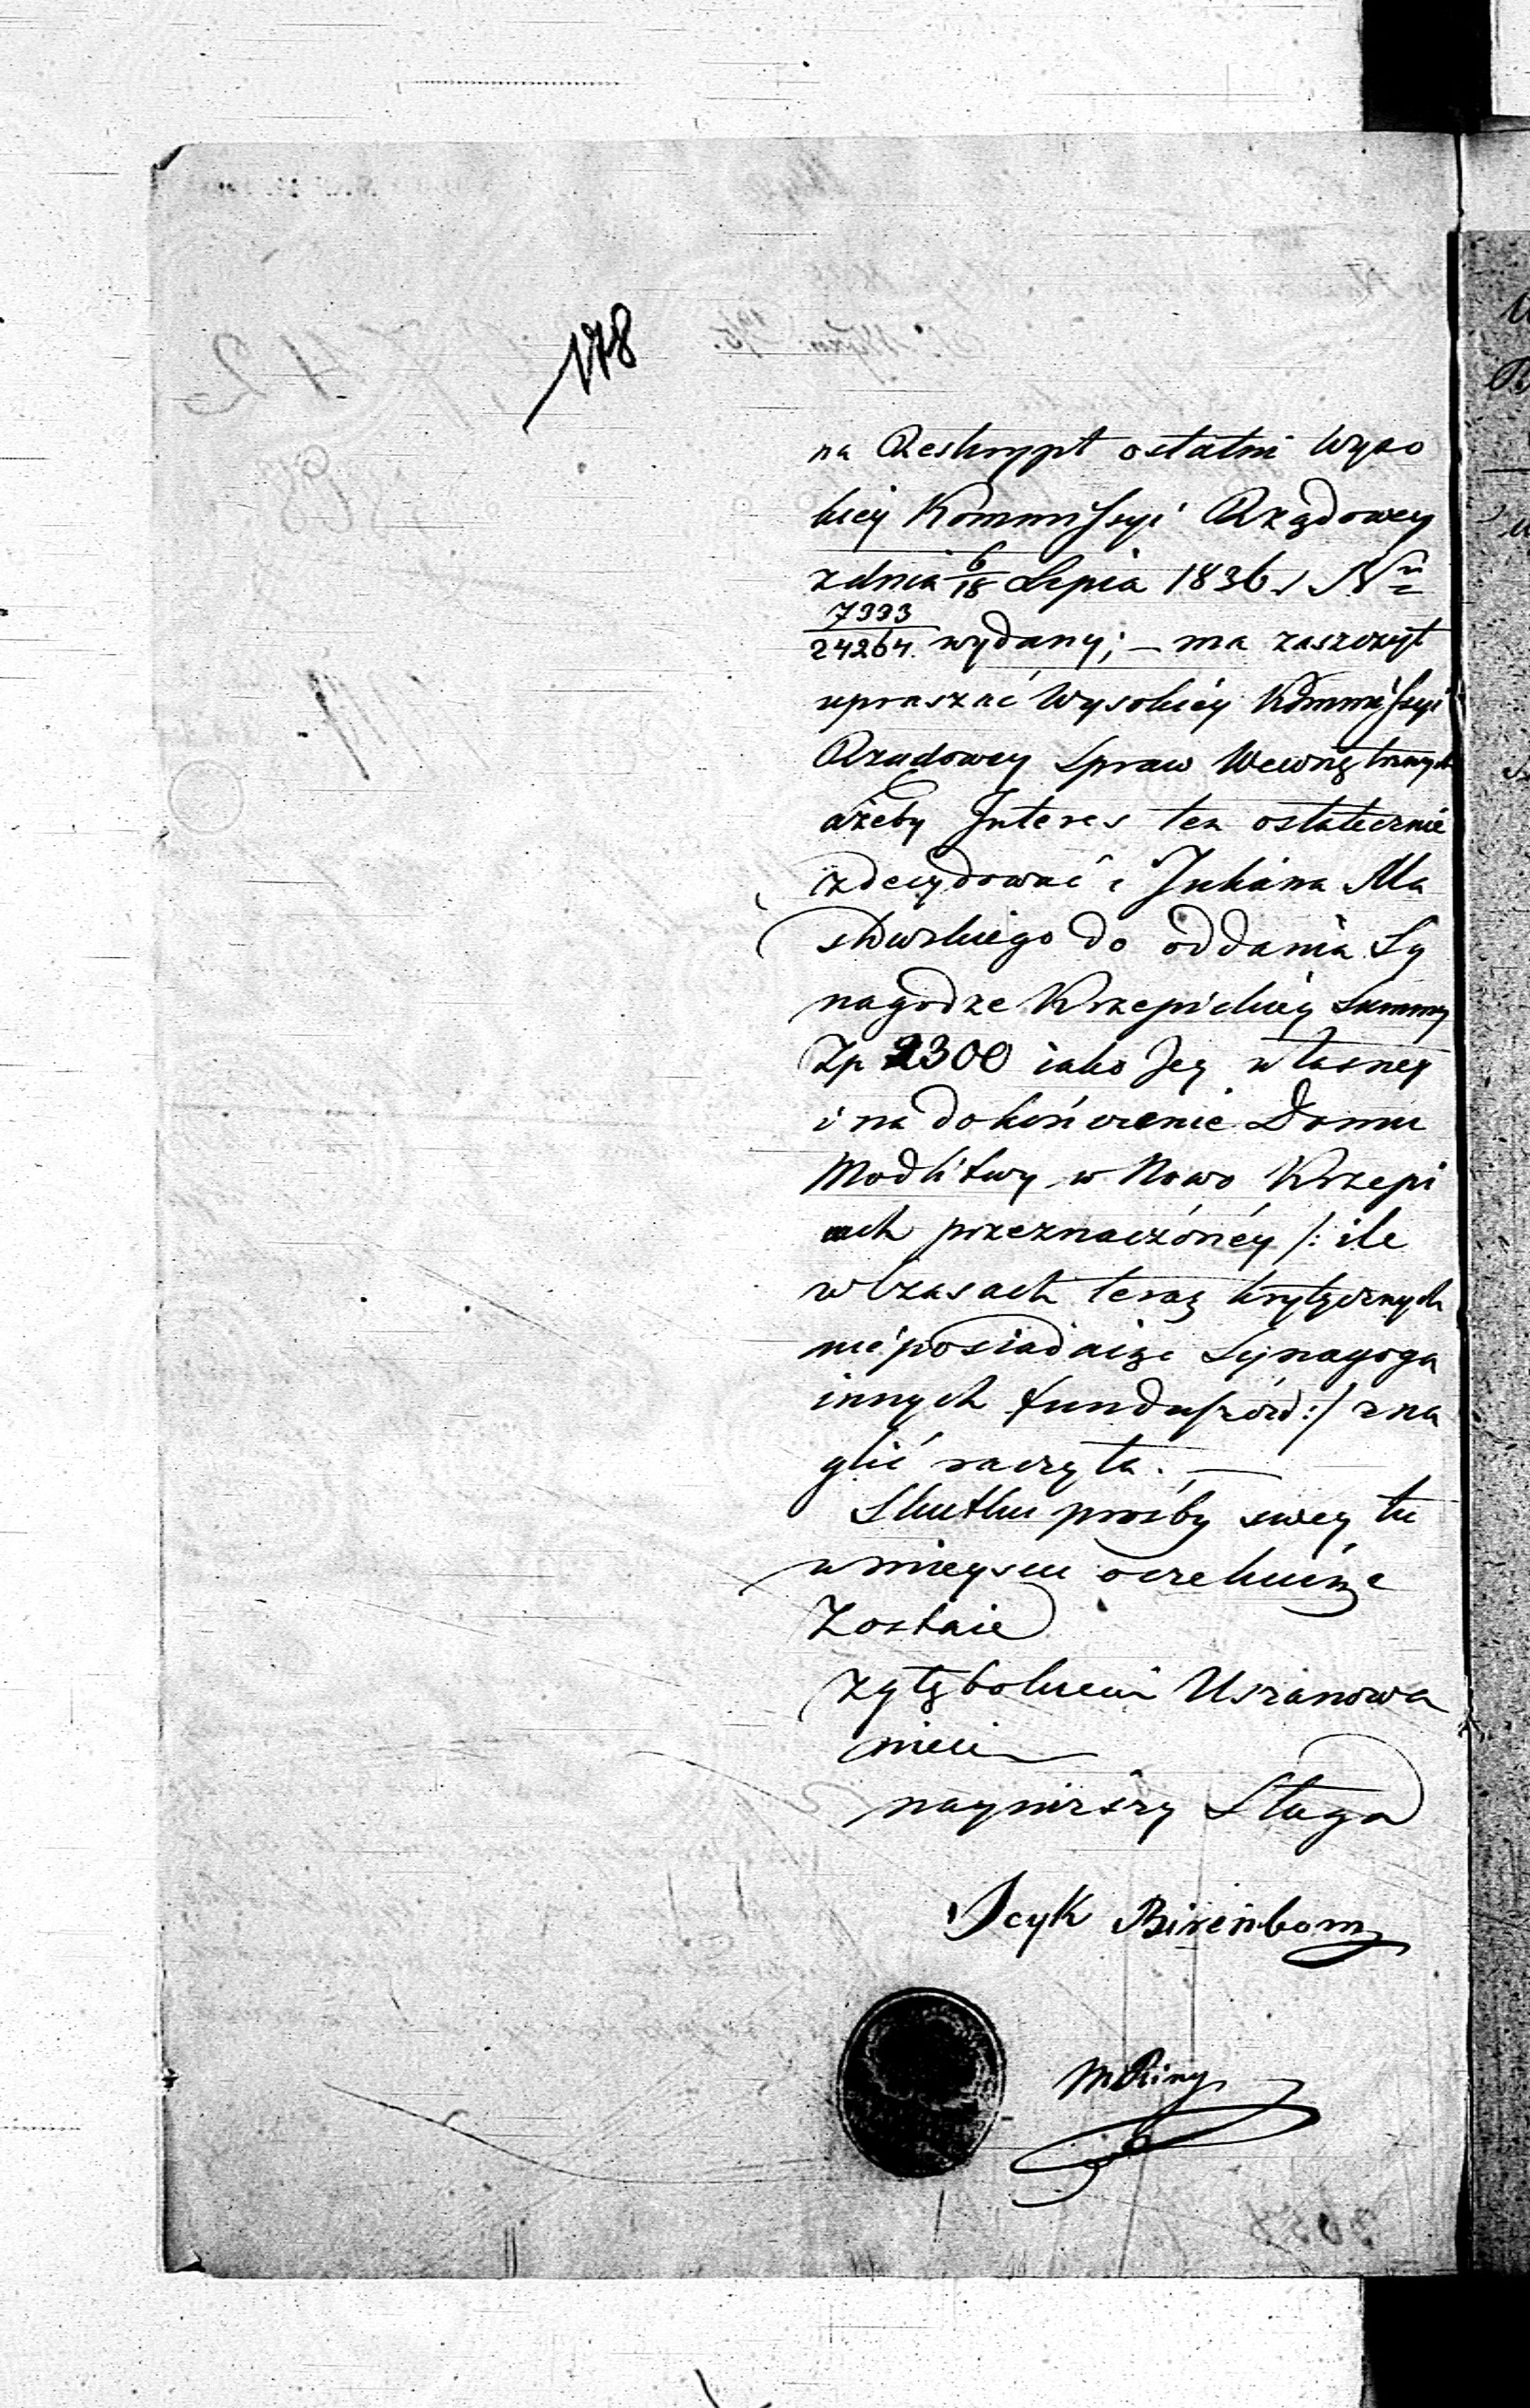 178
na Reskrypt ostatni Wyso
kiey Kommissyi Rządowey
z dnia 6/18 Lipca 1836 r Nr
7333/24264. wydany; – ma zaszczyt
upraszać Wysokiéy Kommissyi
Rządowey Spraw Wewnętrznych
ażeby Interes ten ostatecznie
zdecydować i Juliana Ma
słowskiego do oddania Sy
nagodze Krzepickiéy Summy
Zp 2300 iako Jey własney
i na dokończenie Domu
Modlitwy w Nowo Krzepi
cach przeznaczónéy /: ile
w Czasach teraz krytycznych
nieposiadaiąc Synagoga
innych funduszów :/ zna
glić raczyła. —
Skutku prośby swey tu
w mieyscu oczekuiąc
Zostaie
z głębokiem Uszanowa
niem
nayniższy Sługa
Icyk Birenbom